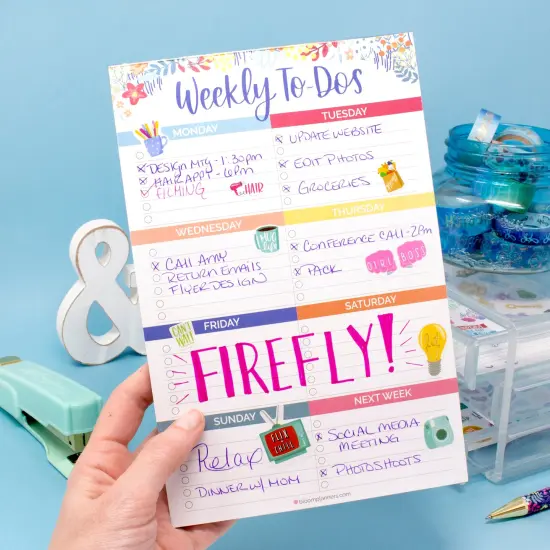 Weekly To-Dos
MONDAY
x DESIGN MTG - 1:30pm
x HAIR APPT - 6pm
x FILMING
HAIR
TUESDAY
x UPDATE WEBSITE
x EDIT PHOTOS
x GROCERIES
WEDNESDAY
MUG
life
x CALL AMY
RETURN EMAILS
FLYER DESIGN
THURSDAY
x CONFERENCE CALL - 2pm
x PACK
GIRL BOSS
FRIDAY
SATURDAY
CAN'T WAIT
FIREFLY!
SUNDAY
FLIX
& CHILL
Relax
DINNER W/ MOM
NEXT WEEK
x SOCIAL MEDIA
MEETING
x PHOTOSHOOTS
bloomplanners.com
&